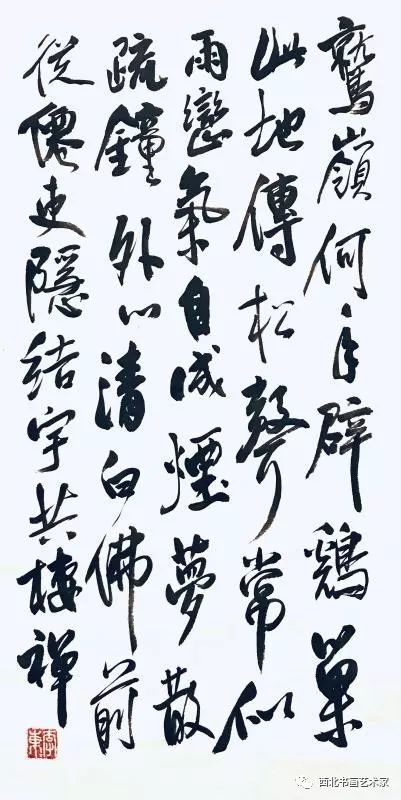 鷲嶺何年辟鷄巢
此地傳松聲常似
雨巒氣自成煙夢散
疏鐘外心清白佛前
從僊吏隱結宇共棲禪
西北书画艺术家